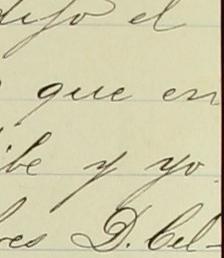 dijo el
que en
ibe y yo
res D. Cel-